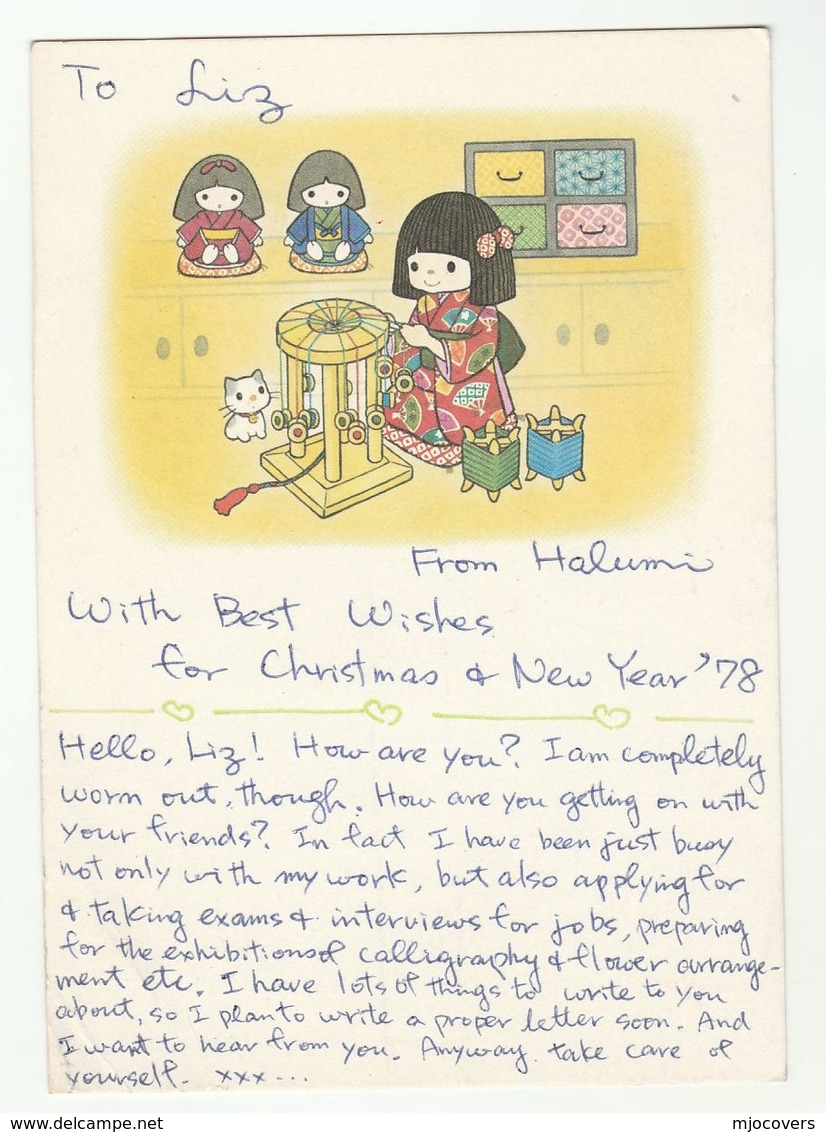 To Liz
From Halumi
With Best Wishes
for Christmas & New Year '78
Hello, Liz! How are you? I am completely
worn out, though. How are you getting on with
your friends? In fact I have been just busy
not only with my work, but also applying for
& taking exams & interviews for jobs, preparing
for the exhibitions of calligraphy & flower arrange-
ment etc. I have lots of things to write to you
about, so I plan to write a proper letter soon. And
I want to hear from you. Anyway, take care of
yourself. xxx...
delcampe.net
mjocovers